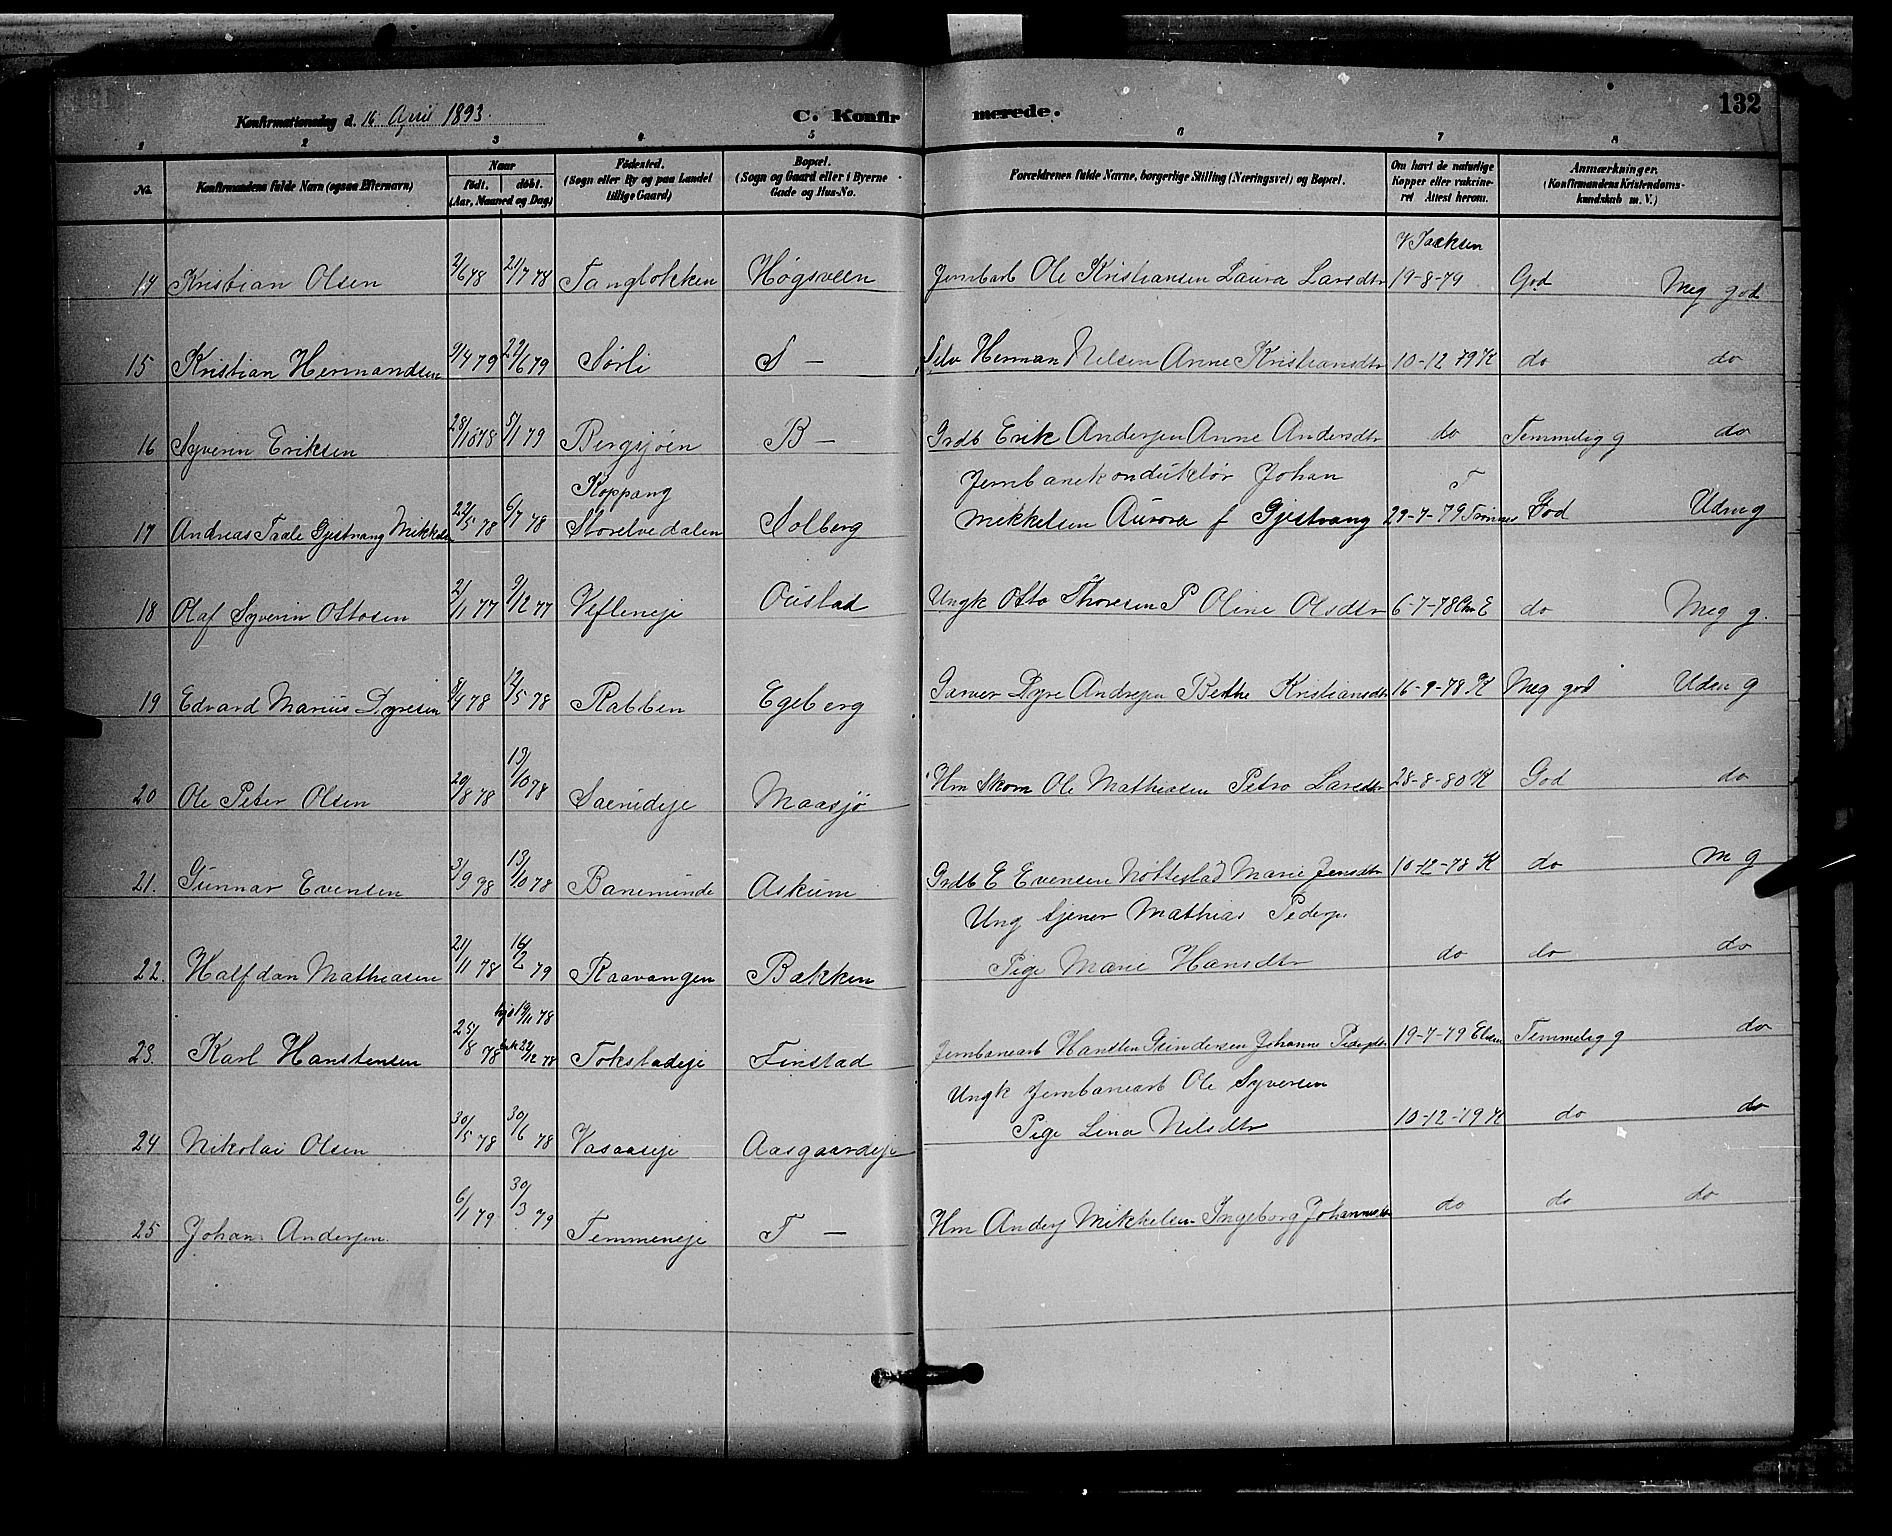 Konfirmationsdag d. 16 April 1893. C. Konfirmerede. 132
1 2 3 4 5 6 7 8
No. Konfirmandens fulde Navn (ogsaa Efternavn) Naar født. døbt. (Aar, Maaned og Dag) Fødested. (Sogn eller By og paa Landet tillige Gaard) Bopæl. (Sogn og Gaard eller i Byerne Gade og Hus-No. Forældrenes fulde Navne, borgerlige Stilling (Næringsvei) og Bopæl. Om havt de naturlige Kopper eller vakcineret Attest herom. Anmærkninger. (Konfirmandens Kristendomskundskab m. V.)
V Isaksen
14 Kristian Olsen 2/6 78 21/7 78 Tangløkken Høgsveen Jernbarb Ole Kristiansen Laura Larsdtr 19-8-79 God Meg god
15 Kristian Hermandsen 9/4 79 22/6 79 Sørli S — Selv Herman Nilsen Anne Kristiansdtr 10-12 79 K do do
16 Syverin Eriksen 28/10 78 5/1 79 Bergsjøen B — Grdb Erik Andersen Anne Andersdtr do Temmelig g do
Koppang Jernbanekonduktør Johan T
17 Andreas Taale Gjestvang Mikkelsen 22/5 78 6/7 78 Storelvedalen Solberg Mikkelsen Aurora f Gjestvang 29-7-79 God Udm g
18 Olaf Syverin Ottosen 2/11 77 9/12 77 Vefleneje Oustad Ungk Otto Thoresen P Oline Olsdtr 6-7-78 do Meg g.
19 Edvard Marius Dyresen 8/4 78 12/5 78 Rabben Egeberg Garver Dyre Andersen Berthe Kristiansdtr 16-9-78 K Meg god Udm g
20 Ole Peter Olsen 20/8 78 13/10 78 Maasjø Hm Skom Ole Mathiasen Petra Larsdtr 28-8-80 K God do
21. Gunnar Evensen 3/9 78 13/10 78 Banerminde Askum Grdb E Evensen Nøttestad Marie Jensdtr 10-12-78 K do m g
Ung tjener Mathias Peders
22. Halfdan Mathiasen 21/11 78 16/2 79 Raavangen Bakken Pige Marie Hansdtr do do do
23. Karl Hanstensen 25/8 78 hj 19/11 78 22/12 78 Tokstadeje Finstad Jernbanearb Hansten Gundersen Johanne Pedersdtr 19-7-79 Temmelig g do
Ungk Jernbanearb Ole Syversen
24 Nikolai Olsen 30/5 78 30/6 78 Vasaaseje Aasgaardeje Pige Lina Nilsdtr 10-12-79 K do do
25 Johan Andersen 6/1 79 30/3 79 Temmeneje T — Hm Anders Mikkelsen Ingeborg Johannesdtr do do do